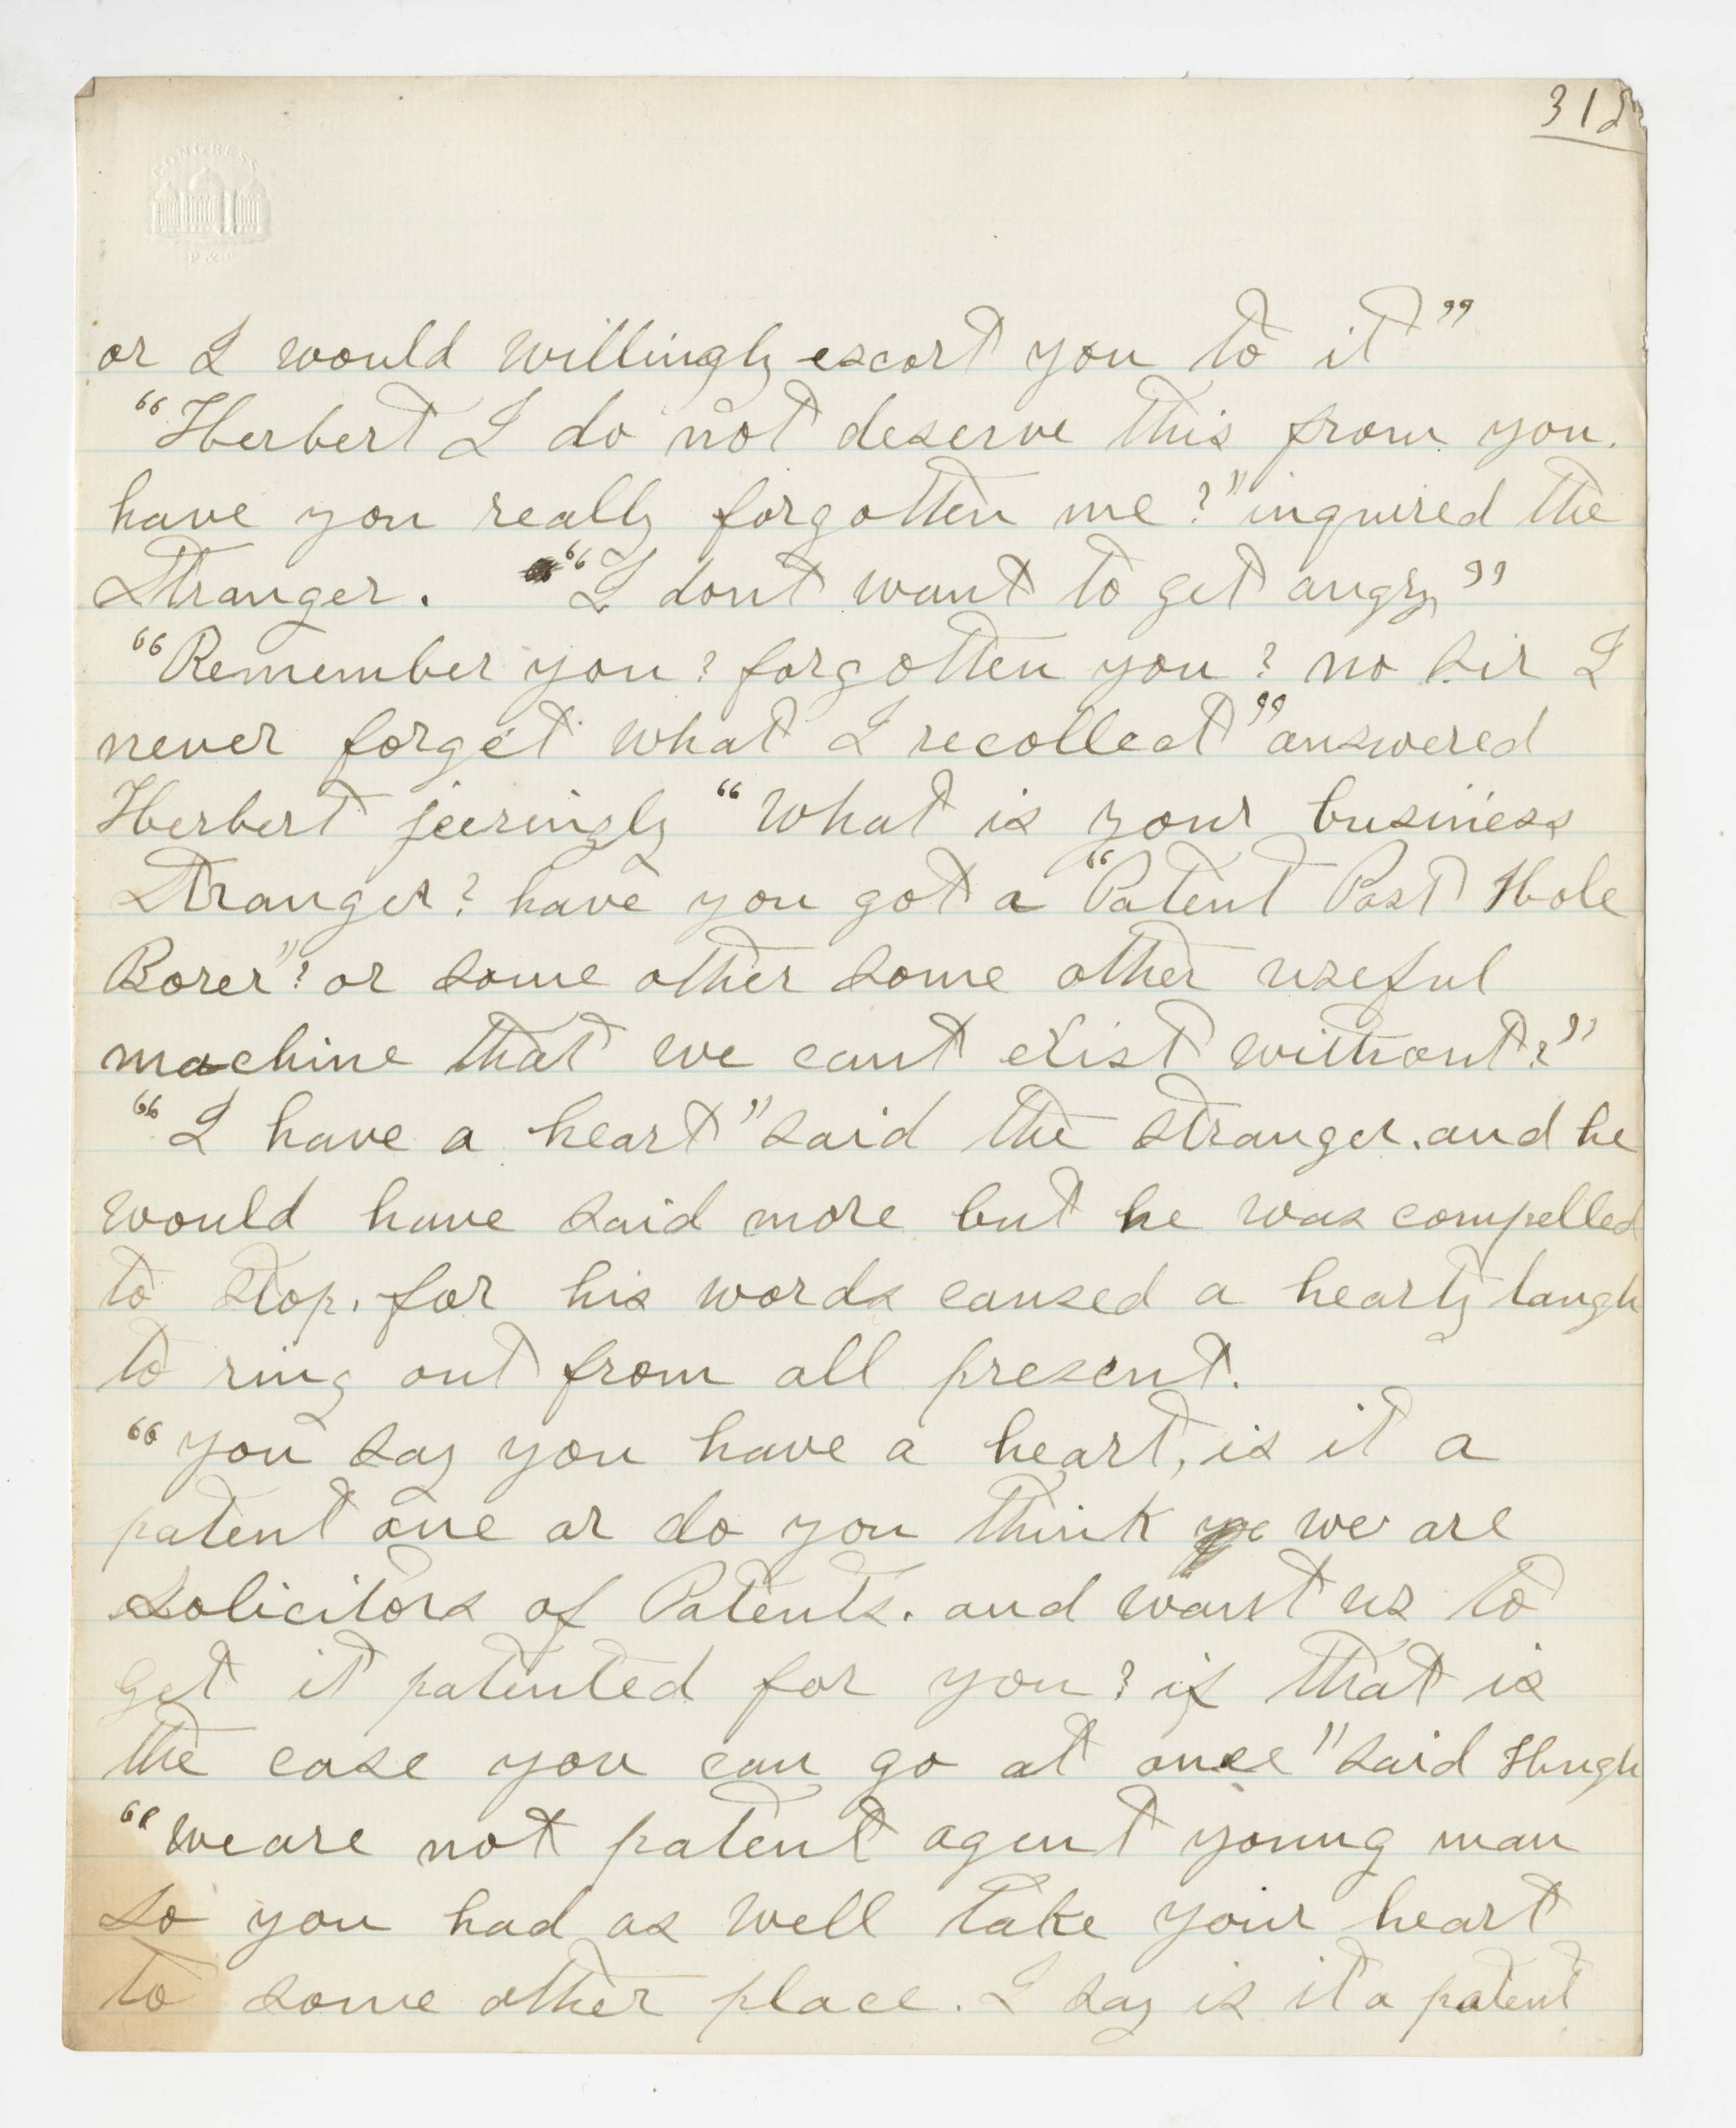 318
CONGRESS
P & P
or I would willingly escort you to it"
"Herbert I do not deserve this from you.
have you really forgotten me?" inquired the
Stranger. "I dont want to get angry"
"Remember you? forgotten you? no Sir I
never forget what I recollect" answered
Herbert jeeringly "What is your business
Stranger? have you got a "Patent Post Hole
Borer"? or some other some other useful
machine that we cant exist without?"
"I have a heart" said the stranger. and he
would have said more but he was compelled
to stop. for his words caused a hearty laugh
to ring out from all present.
"you say you have a heart, is it a
patent one or do you think we are
Solicitors of Patents. and want us to
get it patented for you? if that is
the case you can go at once" said Hugh
"we are not patent agent young man
so you had as well take your heart
to some other place. I say is it a patent